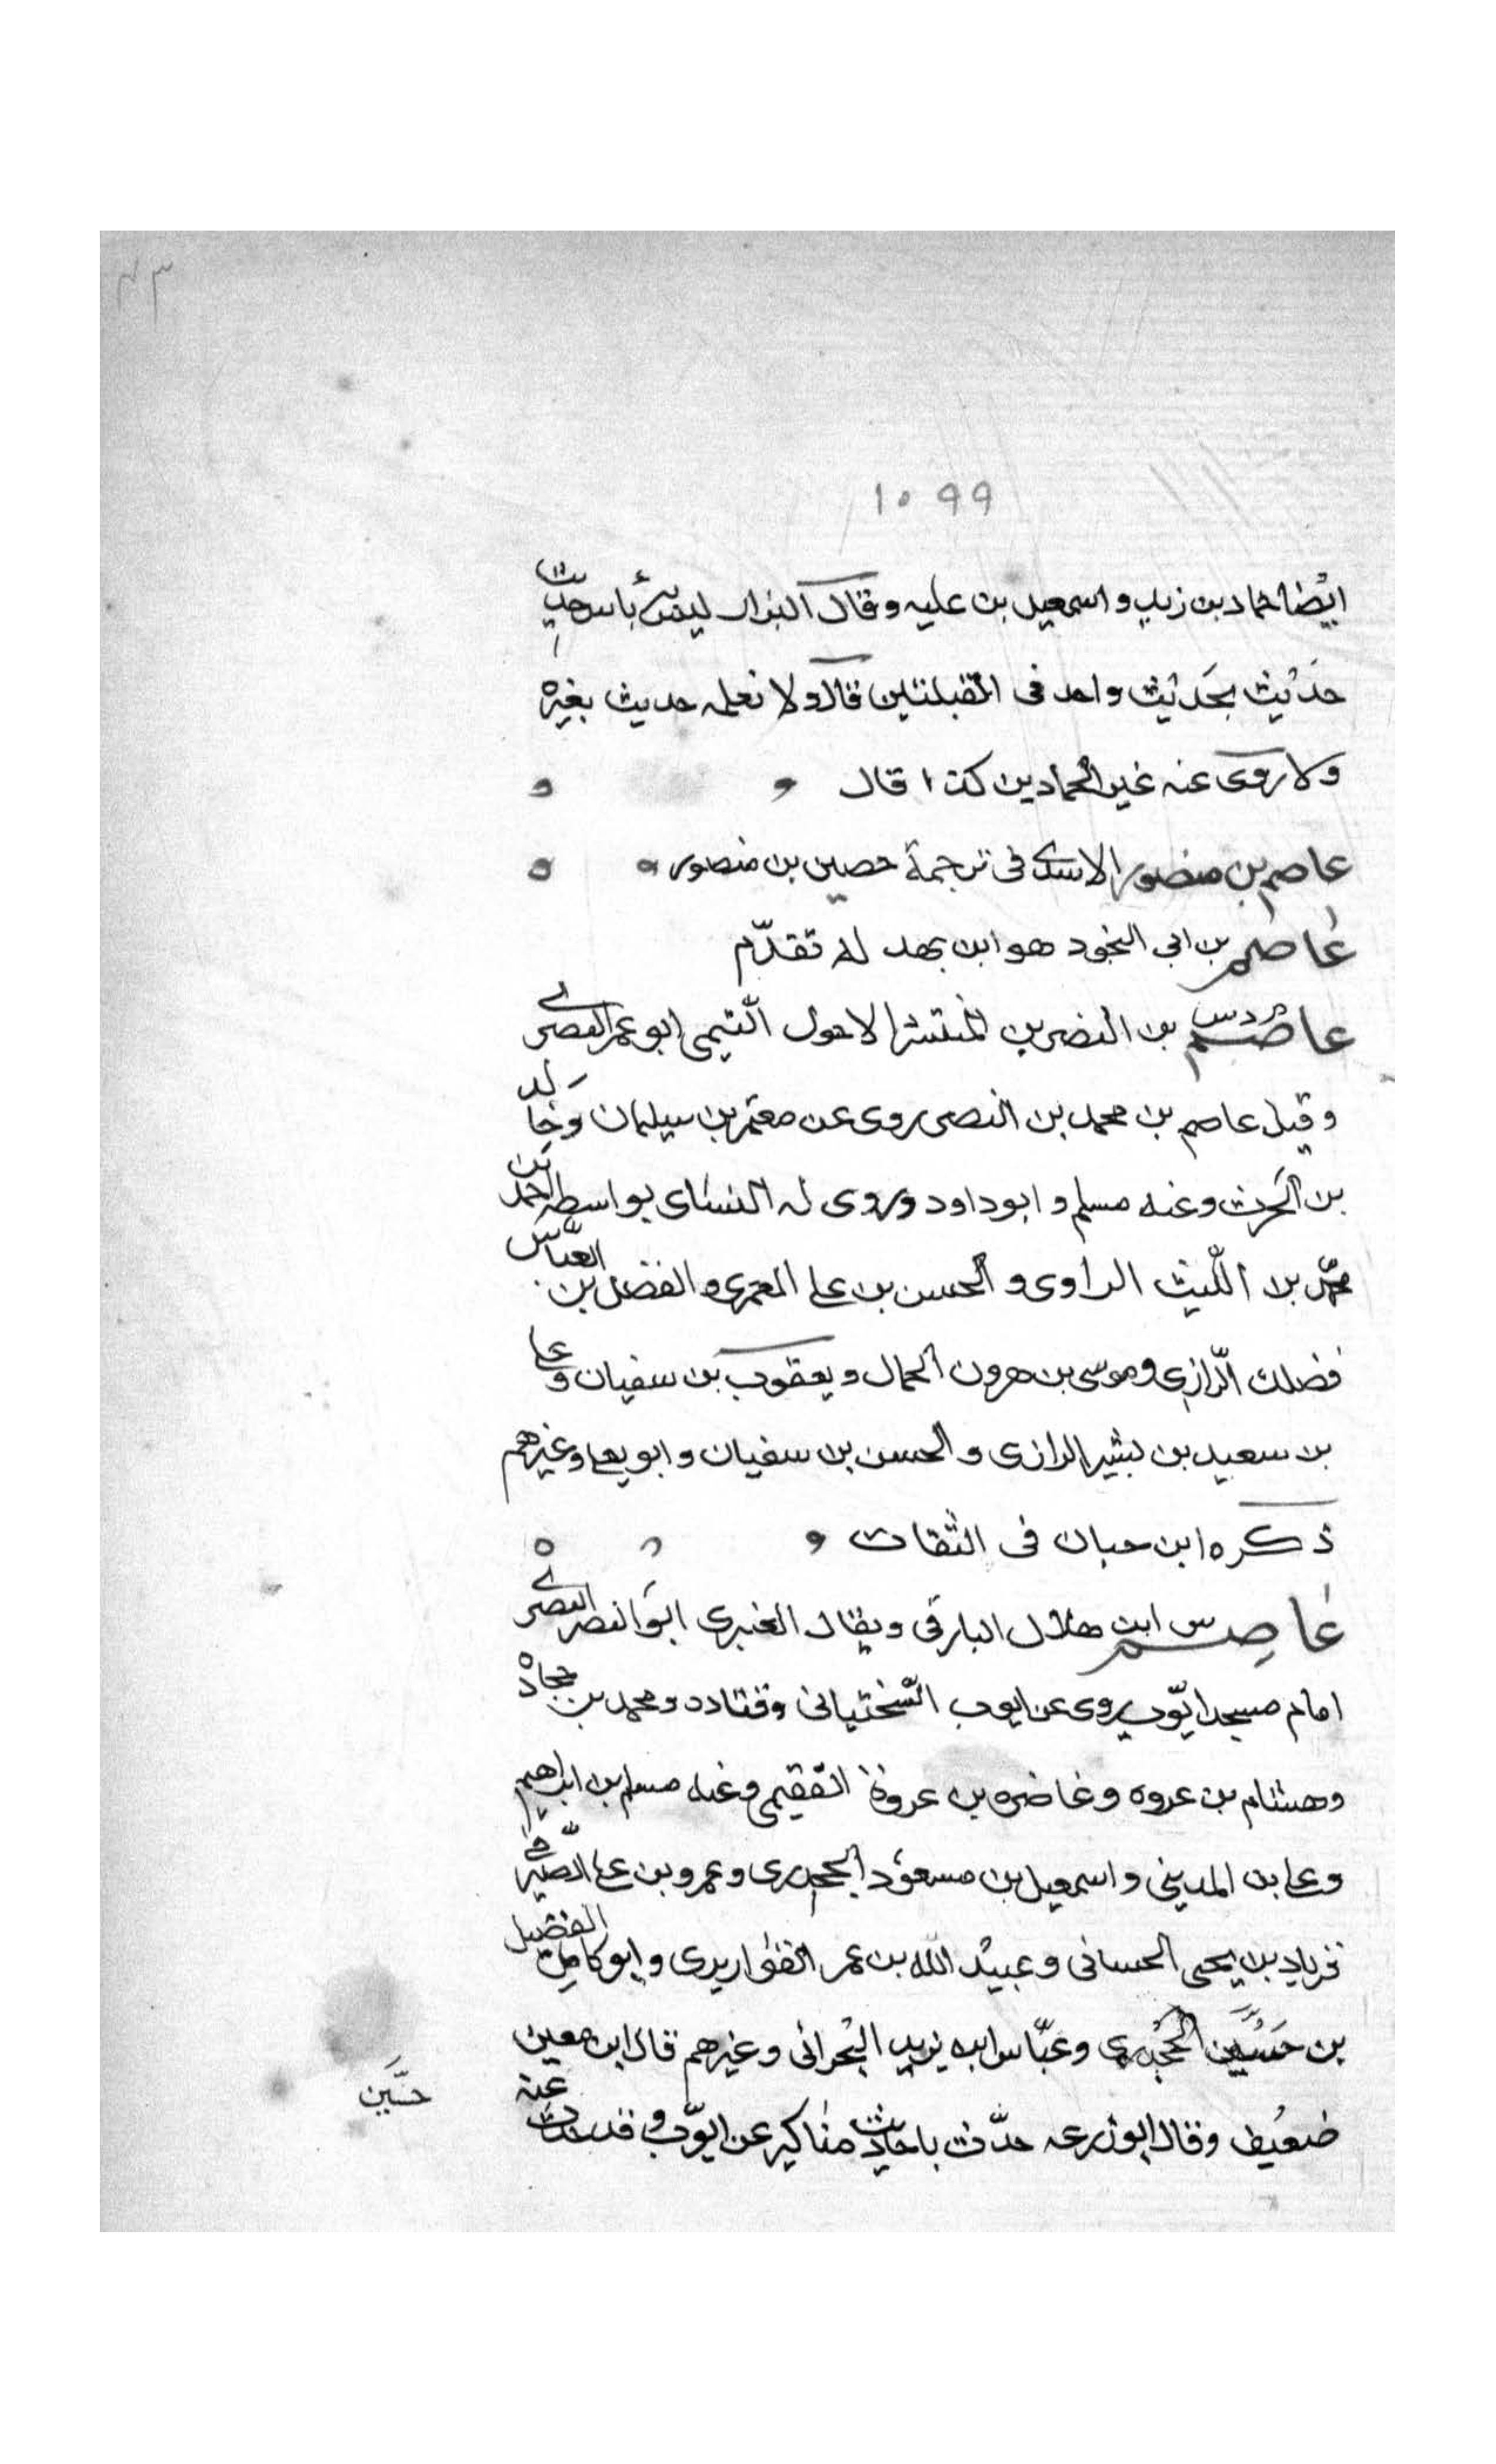 ٤٣
١٠٩٩
ايضا حماد بن زيد واسمعيل بن عليه وقال البزار ليس به باس حدث
حديث بحديث واحد في القبلتين قال ولا نعلمه حديث بغيره
ولا روى عنه غير الحمادين كذا قال
عاصم بن منصور الاسدي في ترجمة حصين بن منصور
عاصم بن ابي النجود هو ابن بهدله تقدّم
عاصم م د س بن النضر بن المنتشر الاحول التيمي ابو عمر البصري
وقيل عاصم بن محمد بن النضر روى عن معتمر بن سليمان وخالد
بن الحرث وعنه مسلم وابو داود وروى له النسائي بواسطه احمد بن
محمد بن الليث الراوي والحسن بن علي المعمري والفضل بن العبّاس
فضلك الرّازي وموسى بن هرون الحمال ويعقوب بن سفيان وعلي
بن سعيد بن بشير الرازي والحسن بن سفيان وابو يعلى وغيرهم
ذكره ابن حبان في الثقات
عاصم س ابن هلال البارقي ويقال العنبري ابو النضر البصري
امام مسجد ايّوب روى عن ايوب السّختياني وقتاده ومحمد بن حجاده
وهشام بن عروه وغاضره بن عروة الفقيمي وعنه مسلم بن ابراهيم
وعلي بن المديني واسمعيل بن مسعود الجحدري وعمرو بن علي الصّيرفي
وزياد بن يحيى الحساني وعبيد الله بن عمر القواريري وابو كامل الفضيل
بن حسين الجحدري وعبّاس ابن يزيد البحراني وغيرهم قال ابن معين
حسين
ضعيف وقال ابو زرعه حدّث باحاديث مناكير عن ايّوب وقد حدث عنه